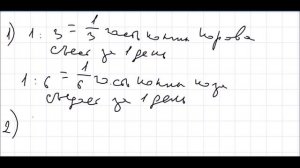 1) 1 : 3 = 1/3 часть копны корова
съест за 1 день
1 : 6 = 1/6 часть копны коза
съедает за 1 день
2)